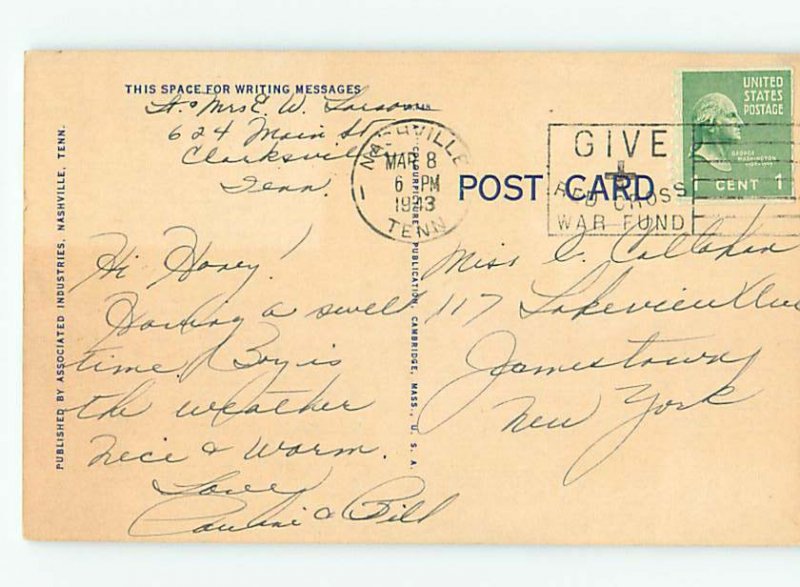 THIS SPACE FOR WRITING MESSAGES
Lt. & Mrs E. W. Larson
624 Main St
Clarksville
Tenn.
Hi Honey!
Having a swell
time, Boy is
the weather
nice & warm.
Love,
Pauline & Bill
PUBLISHED BY ASSOCIATED INDUSTRIES, NASHVILLE, TENN.
COLOURPICTURE PUBLICATION, CAMBRIDGE, MASS., U. S. A.
NASHVILLE
MAR 8
6 PM
1943
TENN
POST CARD
GIVE
RED CROSS
WAR FUND
UNITED
STATES
POSTAGE
GEORGE
WASHINGTON
1 CENT 1
Miss C. Callahan
117 Lakeview Ave
Jamestown
New York